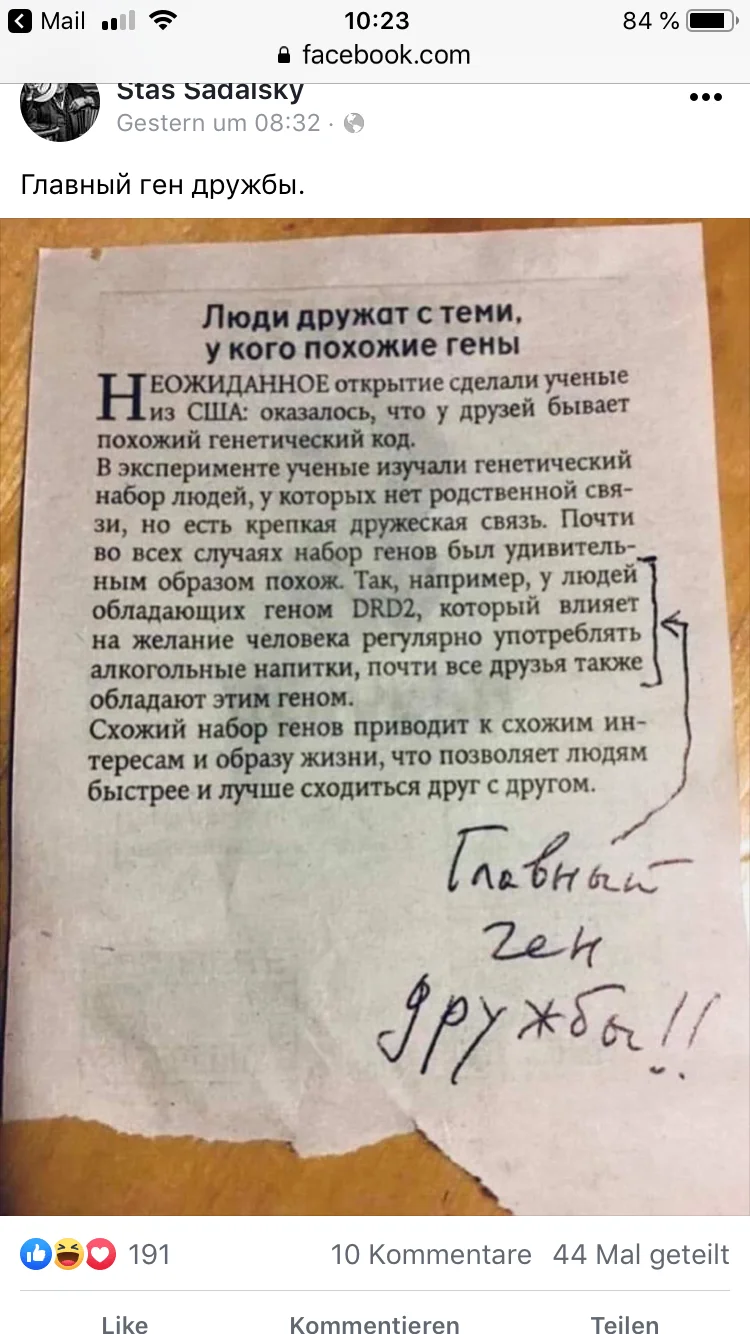 Mail 10:23 84 %
facebook.com
Stas Sadalsky
Gestern um 08:32 ·
Главный ген дружбы.
Люди дружат с теми,
у кого похожие гены
НЕОЖИДАННОЕ открытие сделали ученые
из США: оказалось, что у друзей бывает
похожий генетический код.
В эксперименте ученые изучали генетический
набор людей, у которых нет родственной свя-
зи, но есть крепкая дружеская связь. Почти
во всех случаях набор генов был удивитель-
ным образом похож. Так, например, у людей
обладающих геном DRD2, который влияет
на желание человека регулярно употреблять
алкогольные напитки, почти все друзья также
обладают этим геном.
Схожий набор генов приводит к схожим ин-
тересам и образу жизни, что позволяет людям
быстрее и лучше сходиться друг с другом.
Главный
ген
дружбы!!
191 10 Kommentare 44 Mal geteilt
Like Kommentieren Teilen